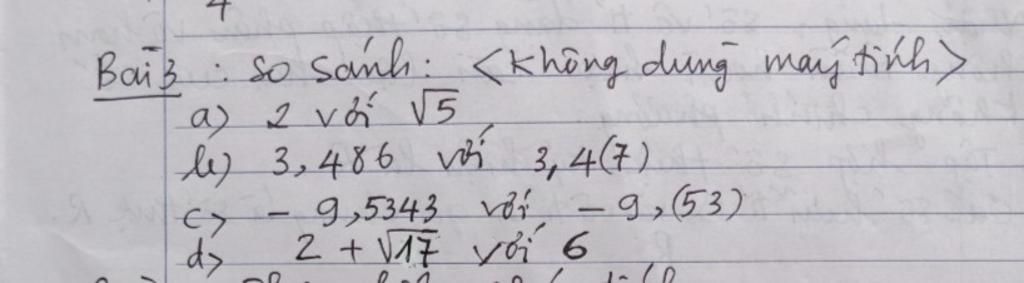 4
Bài 3 : So sánh: <không dùng máy tính>
a) 2 với √5
b) 3,486 với 3,4(7)
c) - 9,5343 với - 9,(53)
d) 2 + √17 với 6